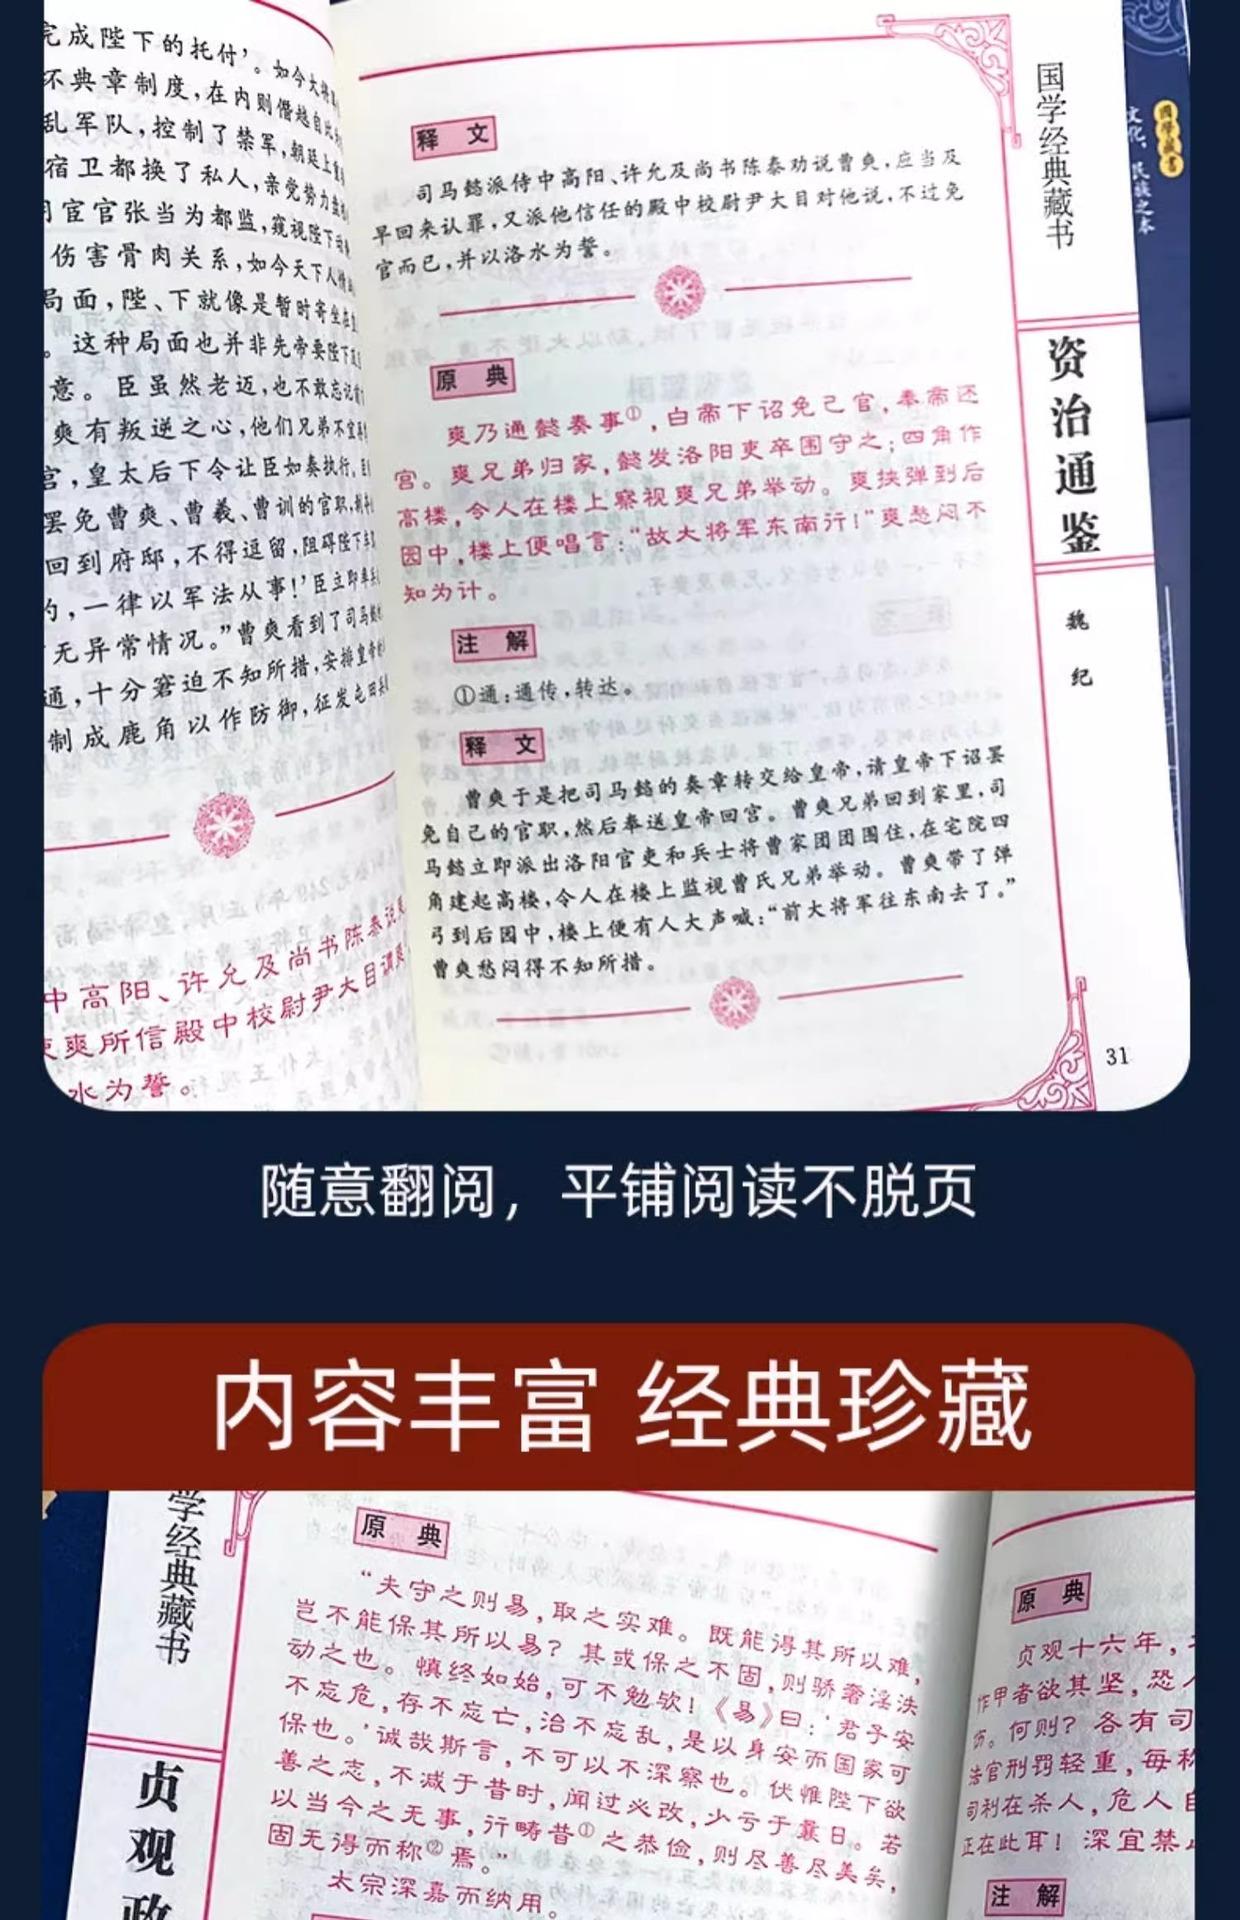 完成陛下的托付’。如今大将
坏典章制度，在内则僭越自比
乱军队，控制了禁军，朝廷上
宿卫都换了私人，亲党势力
用宦官张当为都监，窥视陛下
伤害骨肉关系，如今天下人
局面，陛、下就像是暂时寄坐在
。这种局面也并非先帝要陛下
意。臣虽然老迈，也不敢忘记
爽有叛逆之心，他们兄弟不宜
宫，皇太后下令让臣如奏执行。
罢免曹爽、曹羲、曹训的官职，
回到府邸，不得逗留，阻碍陛下
的，一律以军法从事！’臣立即率兵
无异常情况。”曹爽看到了司马懿
通，十分窘迫不知所措，安排皇帝
制成鹿角以作防御，征发屯田兵
中高阳、许允及尚书陈泰说
使爽所信殿中校尉尹大目谓爽
水为誓。
释 文
司马懿派侍中高阳、许允及尚书陈泰劝说曹爽，应当及
早回来认罪，又派他信任的殿中校尉尹大目对他说，不过免
官而已，并以洛水为誓。
原 典
爽乃通懿奏事①，白帝下诏免己官，奉帝还
宫。爽兄弟归家，懿发洛阳吏卒围守之；四角作
高楼，令人在楼上察视爽兄弟举动。爽挟弹到后
园中，楼上便唱言：“故大将军东南行！”爽愁闷不
知为计。
注 解
①通：通传，转达。
释 文
曹爽于是把司马懿的奏章转交给皇帝，请皇帝下诏罢
免自己的官职，然后奉送皇帝回宫。曹爽兄弟回到家里，司
马懿立即派出洛阳官吏和兵士将曹家团团围住，在宅院四
角建起高楼，令人在楼上监视曹氏兄弟举动。曹爽带了弹
弓到后园中，楼上便有人大声喊：“前大将军往东南去了。”
曹爽愁闷得不知所措。
国学经典藏书
资治通鉴
魏纪
31
国学藏书
文化，民族之本
随意翻阅，平铺阅读不脱页
内容丰富 经典珍藏
学经典藏书
贞观政
原 典
“夫守之则易，取之实难。既能得其所以难，
岂不能保其所以易？其或保之不固，则骄奢淫泆
动之也。慎终如始，可不勉欤！《易》曰：‘君子安
不忘危，存不忘亡，治不忘乱，是以身安而国家可
保也。’诚哉斯言，不可以不深察也。伏惟陛下欲
善之志，不减于昔时，闻过必改，少亏于曩日。若
以当今之无事，行畴昔①之恭俭，则尽善尽美矣，
固无得而称②焉。”
太宗深嘉而纳用。
原 典
贞观十六年，
作甲者欲其坚，恐
伤。何则？各有司
法官刑罚轻重，每称
司利在杀人，危人自
正在此耳！深宜禁止
注 解